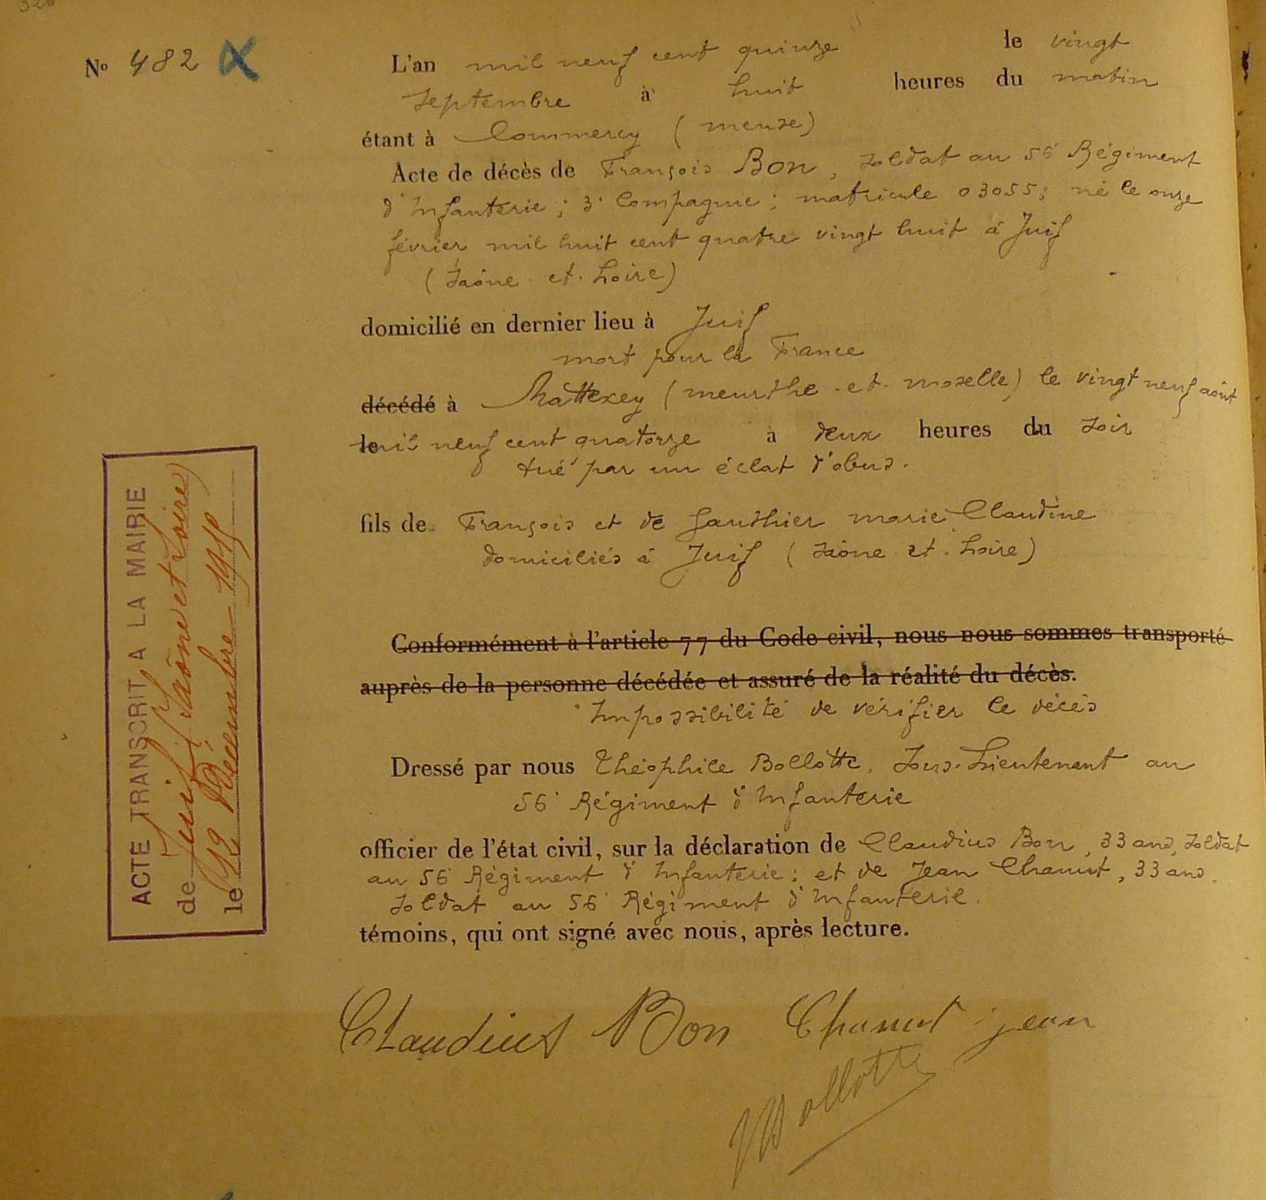 No 482
L'an mil neuf cent quinze le vingt
septembre à huit heures du matin
étant à Commercy (meuse)
Acte de décès de François Bon, soldat au 56e Régiment
d'Infanterie; 3e Compagnie; matricule 03055; né le onze
février mil huit cent quatre vingt huit à Juif
(Saône-et-Loire)
domicilié en dernier lieu à Juif
mort pour la France
décédé à Mattexey (meurthe-et-moselle) le vingt neuf août
le mil neuf cent quatorze à deux heures du soir
tué par un éclat d'obus.
fils de François et de Gauthier marie Claudine
domiciliés à Juif (Saône-et-Loire)
Conformément à l'article 77 du Code civil, nous nous sommes transporté
auprès de la personne décédée et assuré de la réalité du décès.
Impossibilité de vérifier le décès
Dressé par nous Théophile Bollotte, Sous-Lieutenant au
56e Régiment d'Infanterie
officier de l'état civil, sur la déclaration de Claudius Bon, 33 ans, soldat
au 56e Régiment d'Infanterie; et de Jean Chanut, 33 ans,
soldat au 56e Régiment d'Infanterie.
témoins, qui ont signé avec nous, après lecture.
Claudius Bon Chanut jean
Bollotte
ACTE TRANSCRIT A LA MAIRIE
de Juif (Saône et Loire)
le 12 Décembre 1915